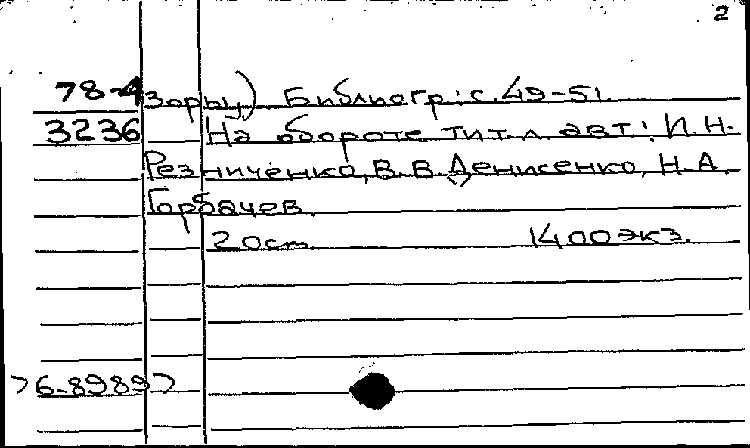 2
78-4 зоры) Библиогр: с. 49-51.
3236 На обороте тит. л. авт.: И. Н.
Резниченко, В. В. Денисенко, Н. А.
Горбачев.
20 см. 1400 экз.
>6-8989>